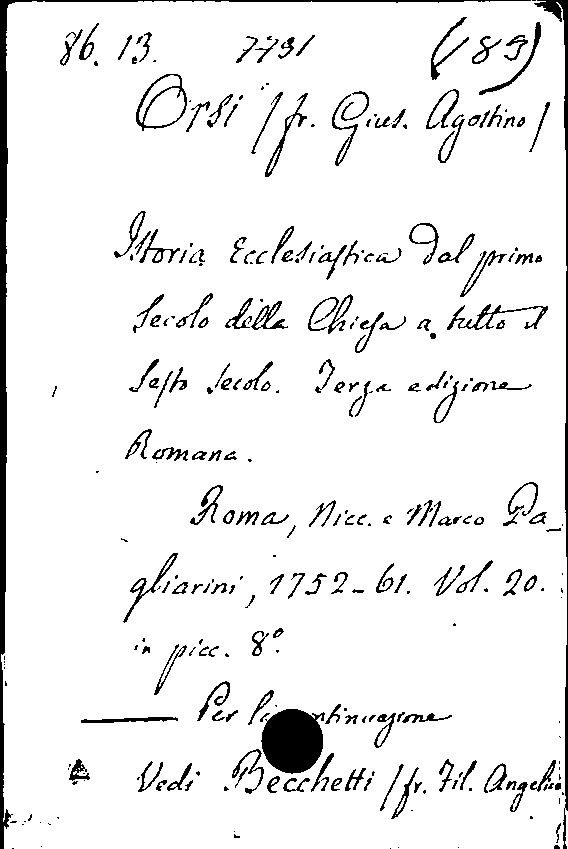 86. 13. 7731 (189)
Orsi /fr. Gius. Agostino/
Istoria Ecclesiastica dal primo
secolo della Chiesa a tutto il
sesto secolo. Terza edizione
Romana.
Roma, Nicc. e Marco Pa-
gliarini, 1752-61. Vol. 20.
in picc. 8°.
Per la continuazione
Vedi Becchetti /fr. Fil. Angelico